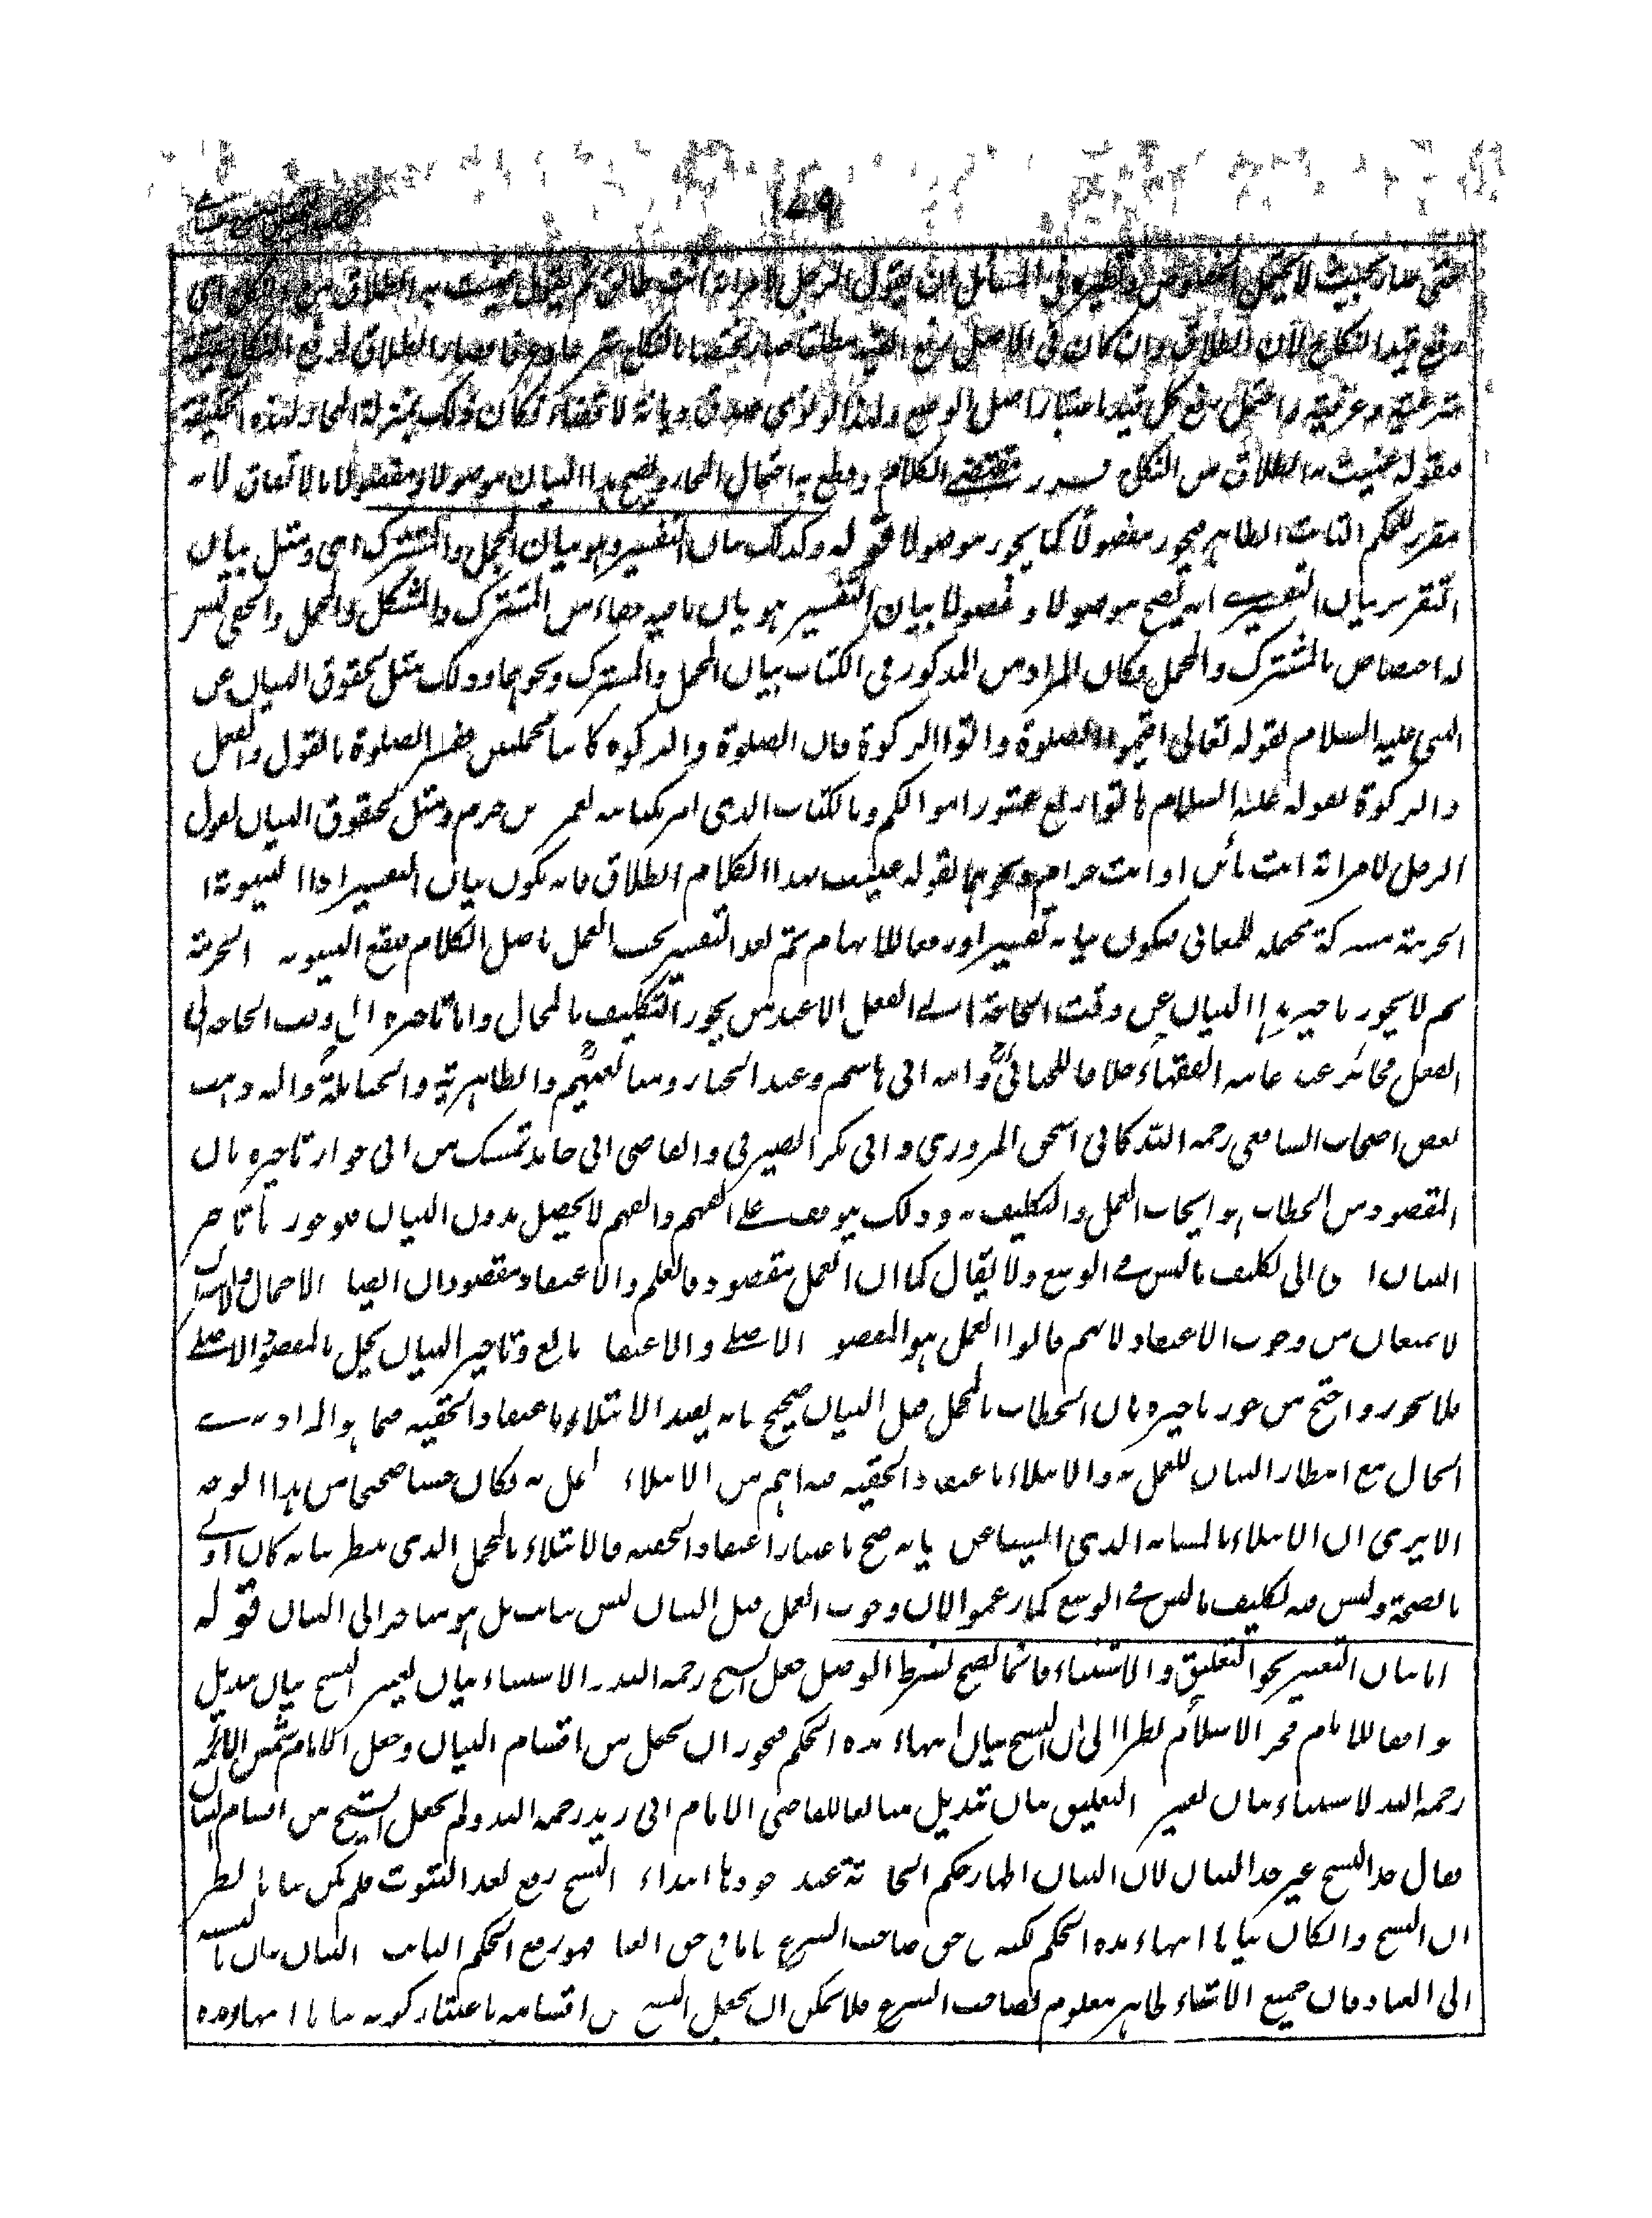 ١٤٩
حتى صار بحيث لا يحتمل الخصوص ونظيره في المسائل ان يقول الرجل لامرأته انت طالق ثم يقول عنيت به الطلاق من النكاح اى
رفع قيد النكاح لان الطلاق وان كان فى الاصل رفع القيد مطلقا صار مختصا بالنكاح شرعا وعرفا فصار الطلاق لرفع النكاح حقيقة
شرعية وعرفية واحتمل رفع كل قيد باعتبار اصل الوضع ولهذا لو نوى صدق ديانة لا قضاء فكان ذلك بمنزلة المجاز لهذه الحقيقة
فقوله عنيت به الطلاق من النكاح مقتضى الكلام وقطع به احتمال المجاز ويصح هذا البيان موصولا ومفصولا بالاتفاق لانه
مقرر للحكم الثابت الظاهر فيجوز مفصولا كما يجوز موصولا قوله وكذلك بيان التفسير وهو بيان المجمل والمشترك اى ومثل بيان
التقرير بيان التفسير انه يصح موصولا ومفصولا بيان التفسير هو بيان ما فيه خفاء من المشترك والمشكل والمجمل والخفى ليس
له اختصاص بالمشترك والمجمل فكان المراد من المذكور فى الكتاب بيان المجمل والمشترك ونحوهما وذلك مثل لحوق البيان من
النبى عليه السلام لقوله تعالى اقيموا الصلوة واتوا الزكوة فان الصلوة والزكوة كانتا مجملتين ففسر الصلوة بالقول والفعل
والزكوة بقوله عليه السلام هاتوا ربع عشور اموالكم وبالكتاب الذى امر بكتابته لعمرو بن حزم ومثل لحوق البيان لقول
الرجل لامرأته انت بائن او انت حرام ونحوهما بقوله عنيت بهذا الكلام الطلاق فانه يكون بيان التفسير اذ البينونة
الحرمة مشتركة محتملة للمعانى فيكون بيانه تفسيرا ورفعا للابهام ثم بعد التفسير يجب العمل باصل الكلام فيقع البينونة الحرمة
ثم لا يجوز تاخير هذا البيان عن وقت الحاجة الى الفعل الا عند من يجوز التكليف بالمحال واما تاخيره الى وقت الحاجة الى
الفعل فجائز عند عامة الفقهاء خلافا للجبائى وابنه ابى هاشم وعبد الجبار ومتابعيهم والظاهرية والحنابلة واليه ذهب
بعض اصحاب الشافعى رحمه الله كابى اسحق المروزى وابى بكر الصيرفى والقاضى ابى حامد تمسك من ابى جواز تاخيره بان
المقصود من الخطاب هو ايجاب العمل والتكليف به وذلك يتوقف على الفهم والفهم لا يحصل بدون البيان فلو جوز نا تاخير
البيان ادى الى تكليف ما ليس فى الوسع ولا يقال كما ان العمل مقصود فالعلم والاعتقاد مقصودان ايضا الاجمال والاشتراك
لا يمنعان من وجوب الاعتقاد لانهم قالوا العمل هو المقصود الاصلى والاعتقاد تابع وتاخير البيان يخل بالمقصود الاصلى
فلا يجوز واحتج من جوز تاخيره بان الخطاب بالمجمل قبل البيان صحيح فانه يفيد الابتلاء باعتقاد الحقية فيما هو المراد به فى
الحال مع انتظار البيان للعمل به والابتلاء باعتقاد الحقية فيه اهم من الابتلاء بالعمل به فكان حسنا صحيحا من هذا الوجه
الا يرى ان الابتلاء بالمتشابه الذى ايسنا عن بيانه صح باعتبار اعتقاد الحقية فالابتلاء بالمجمل الذى ينتظر بيانه كان اولى
بالصحة وليس فيه تكليف ما ليس فى الوسع كما زعموا لان وجوب العمل قبل البيان ليس بثابت بل هو متاخر الى البيان قوله
اما بيان التغيير نحو التعليق والاستثناء فانما يصح بشرط الوصل جعل الشيخ رحمه الله الاستثناء بيان تغيير النسخ بيان تبديل
موافقا للامام فخر الاسلام نظرا الى ان النسخ بيان انتهاء مدة الحكم فيجوز ان يجعل من اقسام البيان وجعل الامام شمس الائمة
رحمه الله الاستثناء بيان تغيير التعليق بيان تبديل متابعا للقاضى الامام ابى زيد رحمه الله ولم يجعل النسخ من اقسام البيان
فقال حد النسخ غير حد البيان لان البيان اظهار حكم الحادثة عند وجودها ابتداء النسخ رفع بعد الثبوت فلم يكن بيانا نظر
ان النسخ وان كان بيانا انتهاء مدة الحكم لكنه فى حق صاحب الشرع فاما فى حق العباد فهو رفع الحكم الثابت البيان بيان بالنسبة
الى العباد فان جميع الاشياء ظاهر معلوم لصاحب الشرع فلا يمكن ان يجعل النسخ من اقسامه باعتبار كونه بيانا انتهاء مدة